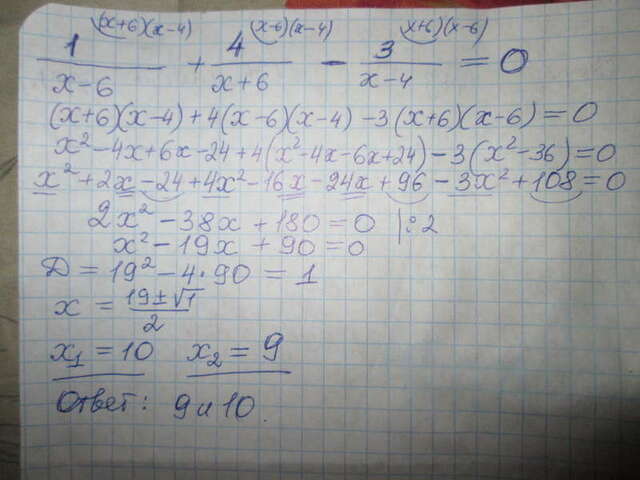 (x+6)(x-4) (x-6)(x-4) (x+6)(x-6)
1/(x-6) + 4/(x+6) - 3/(x-4) = 0
(x+6)(x-4)+4(x-6)(x-4)-3(x+6)(x-6)=0
x²-4x+6x-24+4(x²-4x-6x+24)-3(x²-36)=0
x²+2x-24+4x²-16x-24x+96-3x²+108=0
2x²-38x+180=0 |:2
x²-19x+90=0
D=19²-4·90=1
x=(19±√1)/2
x₁=10 x₂=9
Ответ: 9 и 10.